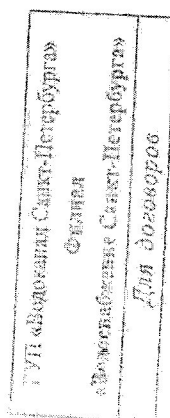 ГУП «Водоканал Санкт-Петербурга»
Филиал
«Водоснабжение Санкт-Петербурга»
Для договоров